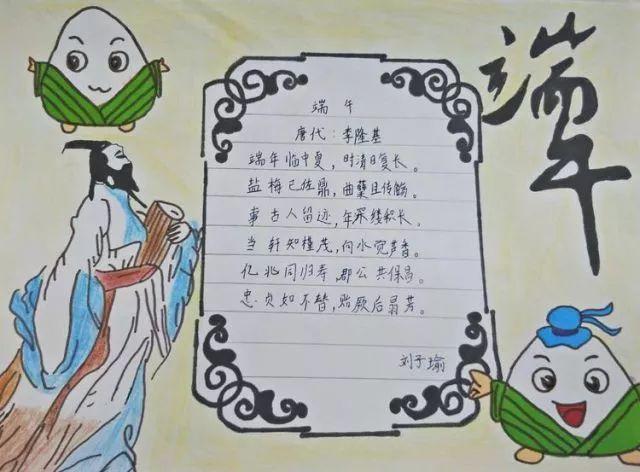 端午
端 午
唐代：李隆基
端年临中夏，时清日复长。
盐梅已佐鼎，曲糵且传觞。
事古人留迹，年深缕积长。
当轩知槿茂，向水觉芦香。
亿兆同归寿，群公共保昌。
忠贞如不替，贻厥后昆芳。
刘子瑜